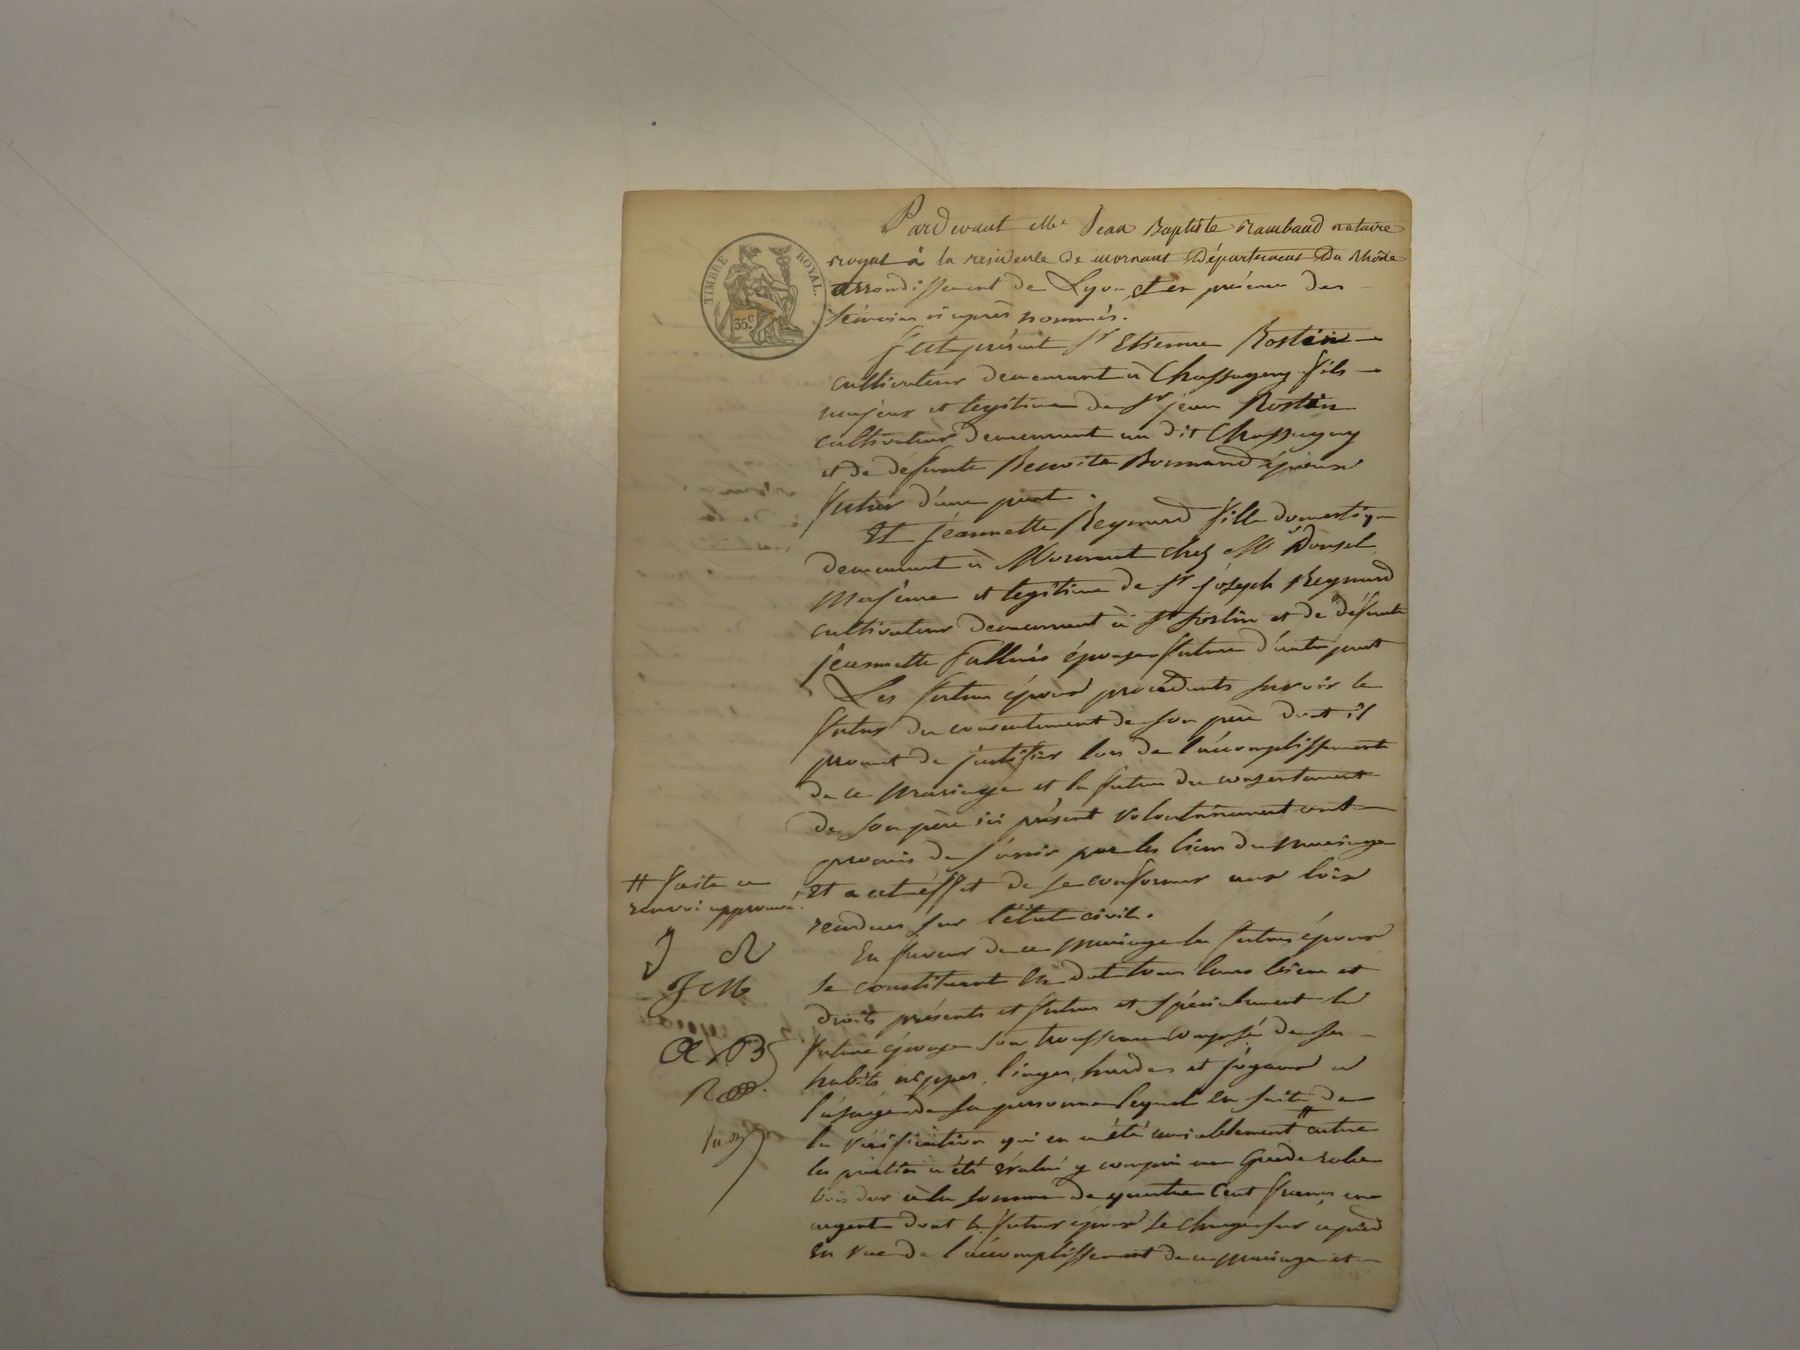 TIMBRE ROYAL.
35c
Pardevant Me Jean Baptiste Rambaud notaire
royal à la residence de mornant Département du Rhône
arrondissement de Lyon et en présence des
témoins ci après nommés.
fut présent Sr Etienne Rostin
cultivateur demeurant à Chassagny fils
majeur et legitime de Sr jean Rostin
cultivateur demeurant au dit Chassagny
et de défunte Benoite époux
futur d'une part.
Et jeannette Reynard fille domestique
demeurant à Mornant chez Mr
Majeure et legitime de Sr joseph Reynard
cultivateur demeurant à St Sorlin et de défunte
jeannette épouse future d'autre part
Les futurs époux procédants savoir le
futur du consentement de son père dont il
promet de justifier lors de l'accomplissement
de ce mariage et la future du consentement
de son père ici présent volontairement ont
promis de s'unir par les liens du mariage
Et a cet éffet de se conformer aux loix
rendues sur l'état civil.
En faveur de ce mariage les futurs époux
se constituent en dot tous leurs biens et
droits présents et futurs et spécialement la
future épouse son trousseau composé de ses
habits nippes, linges, hardes et joyaux à
l'usage de sa personne lequel en suite de
la vérification qui en a été amiablement # entre
les parties a été évalué y compris une Garde robe
bois dur à la somme de quatre cent francs en
argent dont le futur époux se charge
en vue de l'accomplissement de ce mariage et
# faite ce
renvoi approuvé.